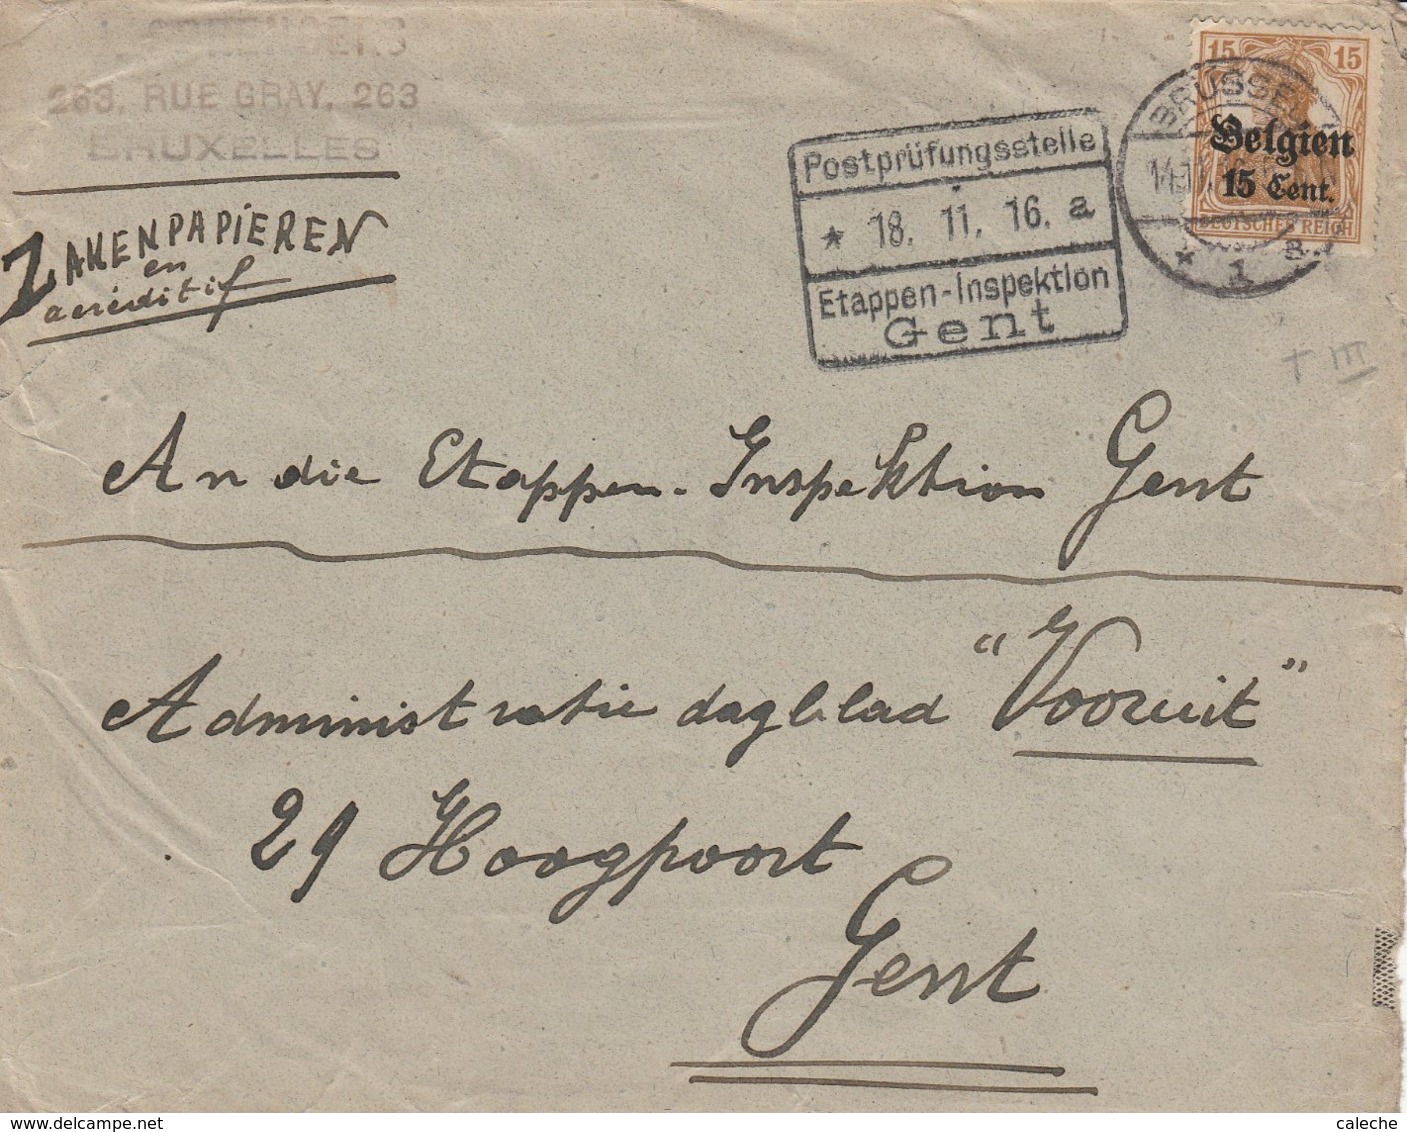 263, RUE GRAY, 263
BRUXELLES
ZAKENPAPIEREN
en
accréditif
Postprüfungsstelle
* 18. 11. 16. a
Etappen-Inspektion
Gent
BRÜSSEL
14.11.
* 1 a.
15 15
Belgien
15 Cent.
DEUTSCHES REICH
T III
An die Etappen-Inspektion Gent
Administratie dagblad "Vooruit"
29 Hoogpoort
Gent
delcampe.net
caleche